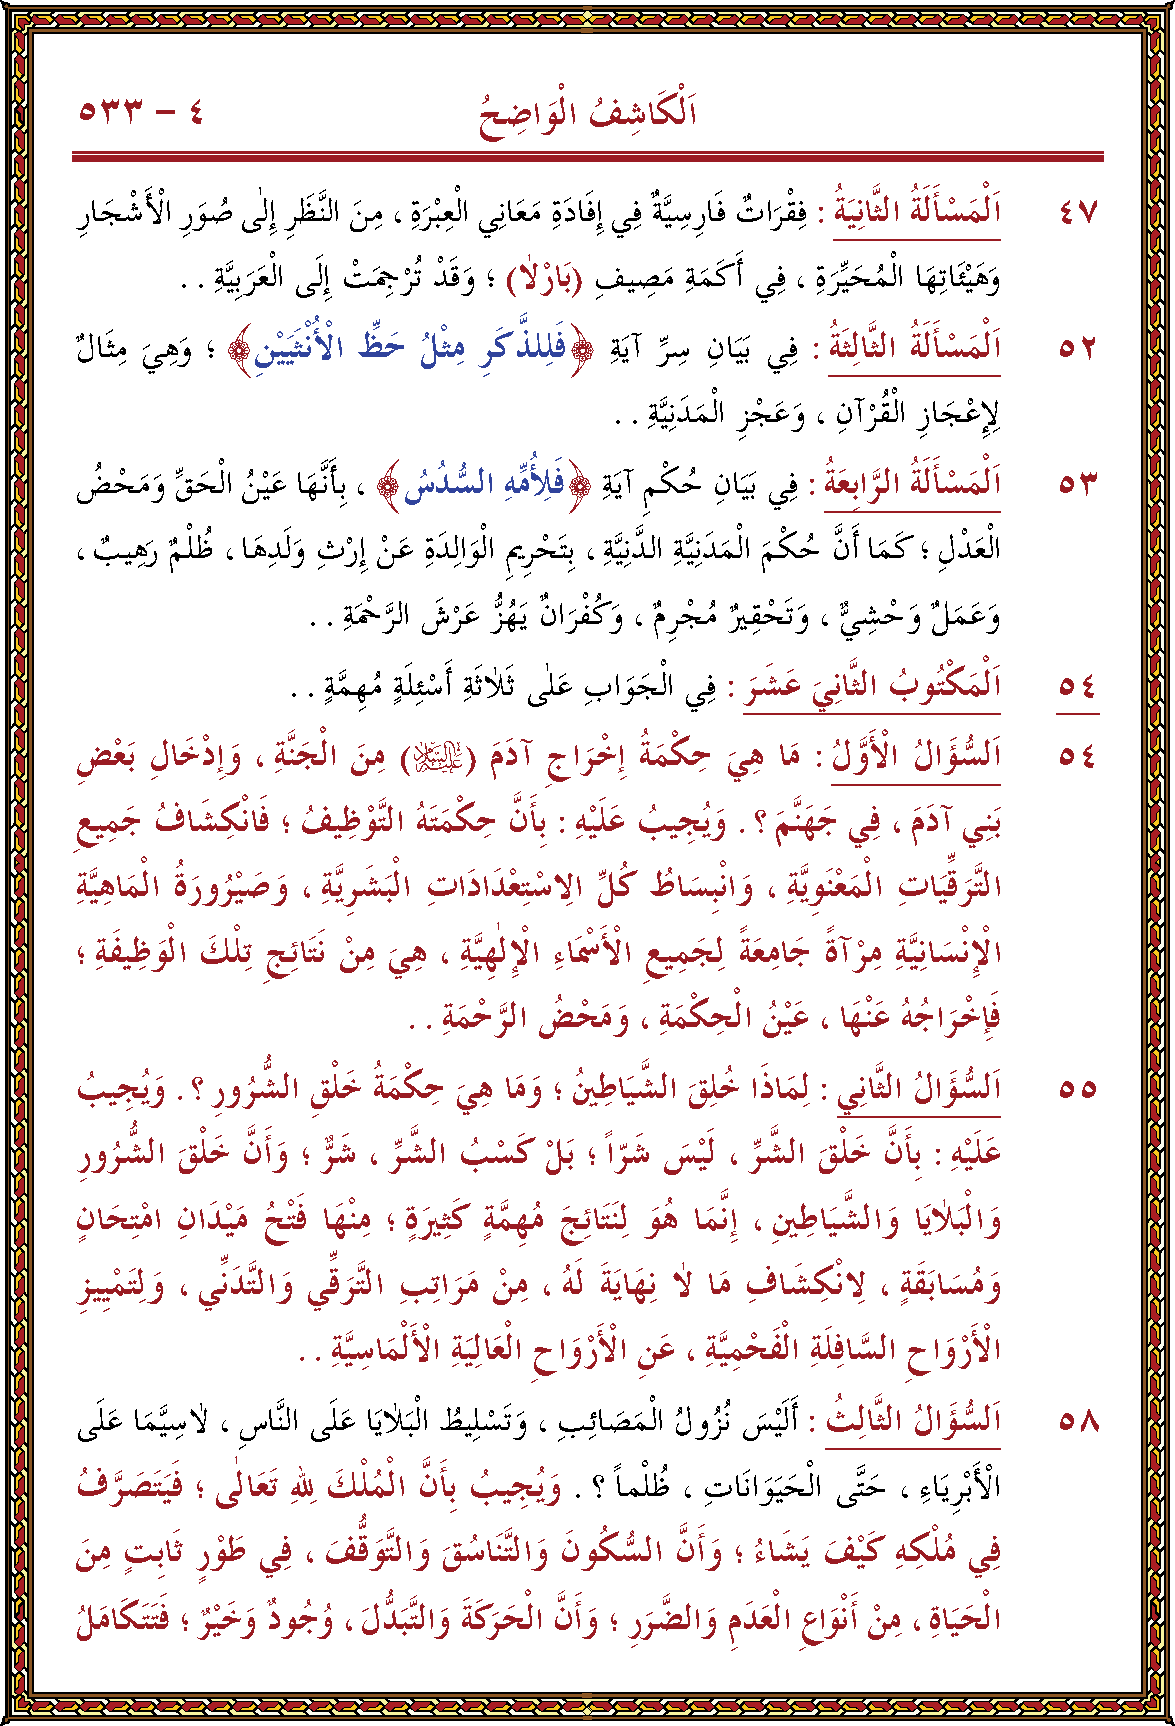 اَلْكَاشِفُ الْوَاضِحُ ٤ - ٥٣٣
٤٧ اَلْمَسْأَلَةُ الثَّانِيَةُ : فِقْرَاتٌ فَارِسِيَّةٌ فِي إِفَادَةِ مَعَانِي الْعِبْرَةِ ، مِنَ النَّظَرِ إِلٰى صُوَرِ الْأَشْجَارِ
وَهَيْئَاتِهَا الْمُحَيِّرَةِ ، فِي أَكَمَةِ مَصِيفِ (بَارْلاٰ) ؛ وَقَدْ تُرْجِمَتْ إِلَى الْعَرَبِيَّةِ . .
٥٢ اَلْمَسْأَلَةُ الثَّالِثَةُ : فِي بَيَانِ سِرِّ آيَةِ ﴿فَلِلذَّكَرِ مِثْلُ حَظِّ الْأُنْثَيَيْنِ﴾ ؛ وَهِيَ مِثَالٌ
لِإِعْجَازِ الْقُرْآنِ ، وَعَجْزِ الْمَدَنِيَّةِ . .
٥٣ اَلْمَسْأَلَةُ الرَّابِعَةُ : فِي بَيَانِ حُكْمِ آيَةِ ﴿فَلِأُمِّهِ السُّدُسُ﴾ ، بِأَنَّهَا عَيْنُ الْحَقِّ وَمَحْضُ
الْعَدْلِ ؛ كَمَا أَنَّ حُكْمَ الْمَدَنِيَّةِ الدَّنِيَّةِ ، بِتَحْرِيمِ الْوَالِدَةِ عَنْ إِرْثِ وَلَدِهَا ، ظُلْمٌ رَهِيبٌ ،
وَعَمَلٌ وَحْشِيٌّ ، وَتَحْقِيرٌ مُجْرِمٌ ، وَكُفْرَانٌ يَهُزُّ عَرْشَ الرَّحْمَةِ . .
٥٤ اَلْمَكْتُوبُ الثَّانِيَ عَشَرَ : فِي الْجَوَابِ عَلٰى ثَلاٰثَةِ أَسْئِلَةٍ مُهِمَّةٍ . .
٥٤ اَلسُّؤَالُ الْأَوَّلُ : مَا هِيَ حِكْمَةُ إِخْرَاجِ آدَمَ (عَلَيْهِ السَّلَامُ) مِنَ الْجَنَّةِ ، وَإِدْخَالِ بَعْضِ
بَنِي آدَمَ ، فِي جَهَنَّمَ ؟ . وَيُجِيبُ عَلَيْهِ : بِأَنَّ حِكْمَتَهُ التَّوْظِيفُ ؛ فَانْكِشَافُ جَمِيعِ
التَّرَقِّيَاتِ الْمَعْنَوِيَّةِ ، وَانْبِسَاطُ كُلِّ الِاسْتِعْدَادَاتِ الْبَشَرِيَّةِ ، وَصَيْرُورَةُ الْمَاهِيَّةِ
الْإِنْسَانِيَّةِ مِرْآةً جَامِعَةً لِجَمِيعِ الْأَسْمَاءِ الْإِلٰهِيَّةِ ، هِيَ مِنْ نَتَائِجِ تِلْكَ الْوَظِيفَةِ ؛
فَإِخْرَاجُهُ عَنْهَا ، عَيْنُ الْحِكْمَةِ ، وَمَحْضُ الرَّحْمَةِ . .
٥٥ اَلسُّؤَالُ الثَّانِي : لِمَاذَا خُلِقَ الشَّيَاطِينُ ؛ وَمَا هِيَ حِكْمَةُ خَلْقِ الشُّرُورِ ؟ . وَيُجِيبُ
عَلَيْهِ : بِأَنَّ خَلْقَ الشَّرِّ ، لَيْسَ شَرّاً ؛ بَلْ كَسْبُ الشَّرِّ ، شَرٌّ ؛ وَأَنَّ خَلْقَ الشُّرُورِ
وَالْبَلاٰيَا وَالشَّيَاطِينِ ، إِنَّمَا هُوَ لِنَتَائِجَ مُهِمَّةٍ كَثِيرَةٍ ؛ مِنْهَا فَتْحُ مَيْدَانِ امْتِحَانٍ
وَمُسَابَقَةٍ ، لِانْكِشَافِ مَا لاٰ نِهَايَةَ لَهُ ، مِنْ مَرَاتِبِ التَّرَقِّي وَالتَّدَنِّي ، وَلِتَمْيِيزِ
الْأَرْوَاحِ السَّافِلَةِ الْفَحْمِيَّةِ ، عَنِ الْأَرْوَاحِ الْعَالِيَةِ الْأَلْمَاسِيَّةِ . .
٥٨ اَلسُّؤَالُ الثَّالِثُ : أَلَيْسَ نُزُولُ الْمَصَائِبِ ، وَتَسْلِيطُ الْبَلاٰيَا عَلَى النَّاسِ ، لاٰسِيَّمَا عَلَى
الْأَبْرِيَاءِ ، حَتَّى الْحَيَوَانَاتِ ، ظُلْماً ؟ . وَيُجِيبُ بِأَنَّ الْمُلْكَ لِلّٰهِ تَعَالٰى ؛ فَيَتَصَرَّفُ
فِي مُلْكِهِ كَيْفَ يَشَاءُ ؛ وَأَنَّ السُّكُونَ وَالتَّنَاسُقَ وَالتَّوَقُّفَ ، فِي طَوْرٍ ثَابِتٍ مِنَ
الْحَيَاةِ ، مِنْ أَنْوَاعِ الْعَدَمِ وَالضَّرَرِ ؛ وَأَنَّ الْحَرَكَةَ وَالتَّبَدُّلَ ، وُجُودٌ وَخَيْرٌ ؛ فَتَتَكَامَلُ